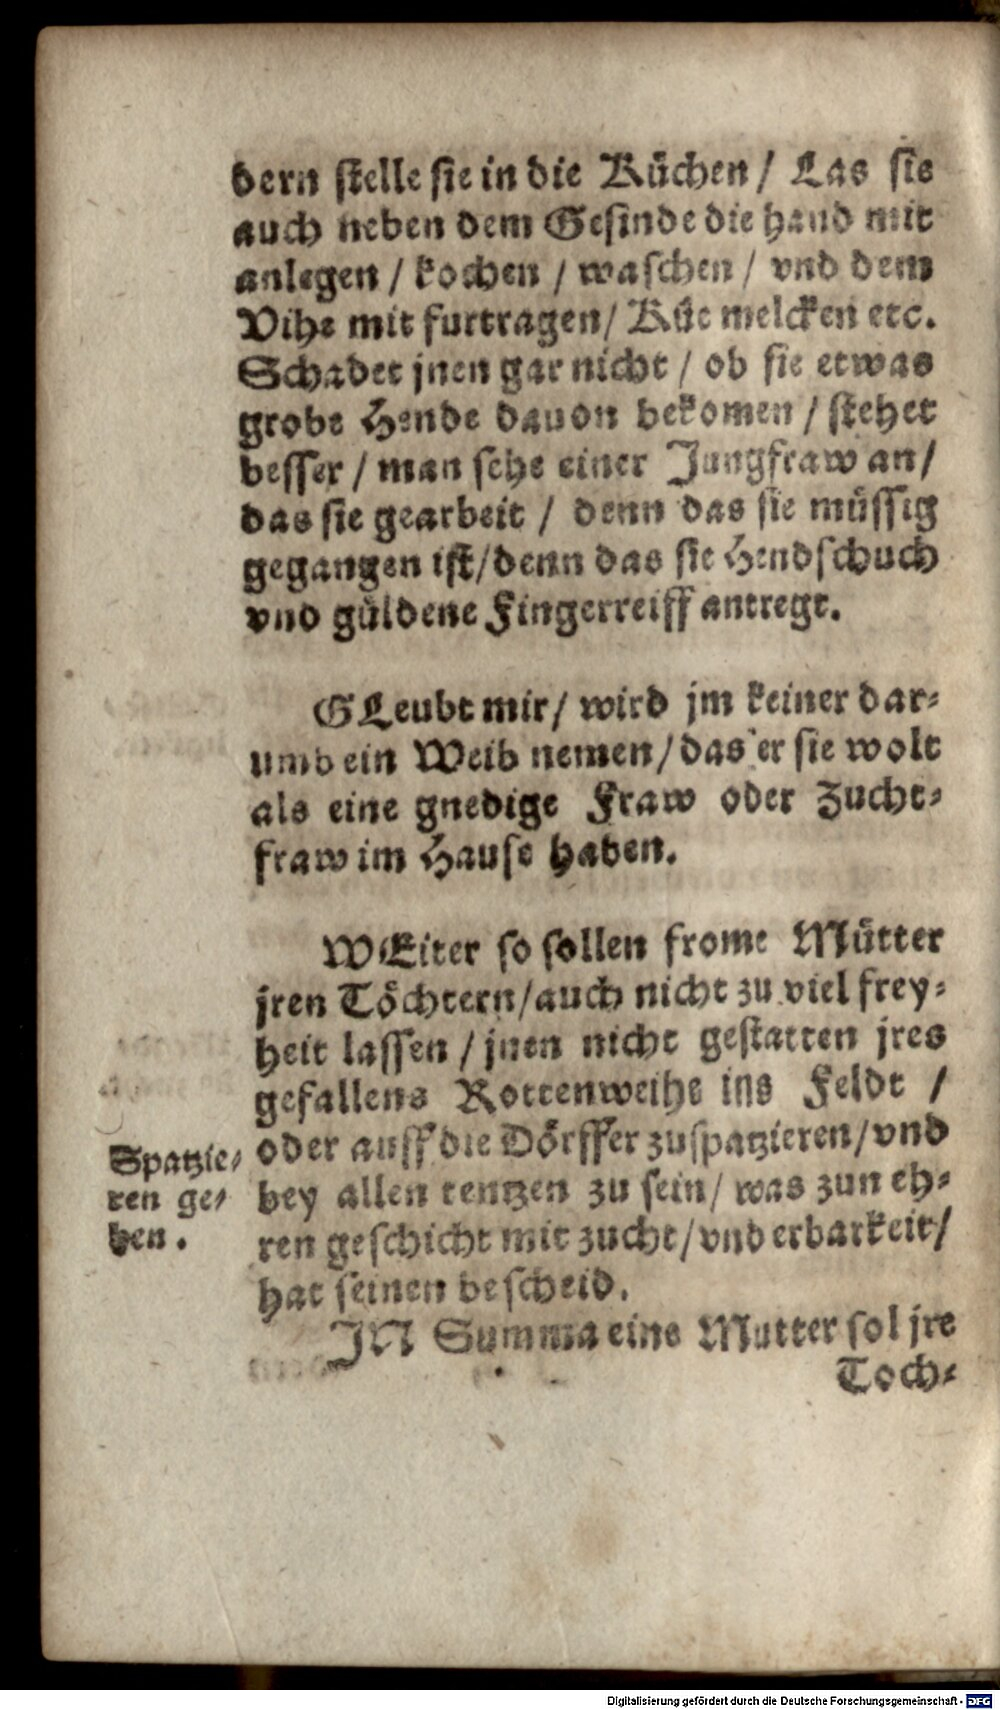 dern stelle sie in die Küchen / Las sie
auch neben dem Gesinde die hand mit
anlegen / kochen / waschen / vnd dem
Vihe mit furtragen / Küe melcken etc.
Schadet jnen gar nicht / ob sie etwas
grobe Hende dauon bekomen / stehet
besser / man sehe einer Jungfraw an /
das sie gearbeit / denn das sie müssig
gegangen ist / denn das sie Hendschuch
vnd güldene Fingerreiff antregt.
GLeubt mir / wird jm keiner dar-
umb ein Weib nemen / das er sie wolt
als eine gnedige Fraw oder Zucht-
fraw im Hause haben.
WEiter so sollen frome Mütter
jren Töchtern / auch nicht zu viel frey-
heit lassen / jnen nicht gestatten jres
gefallens Rottenweihe ins Feldt /
oder auff die Dörffer zuspatzieren / vnd
Spatzie-
ren ge-
hen.
bey allen tentzen zu sein / was zun eh-
ren geschicht mit zucht / vnd erbarkeit /
hat seinen bescheid.
JN Summa eine Mutter sol jre
Toch-
Digitalisierung gefördert durch die Deutsche Forschungsgemeinschaft - DFG